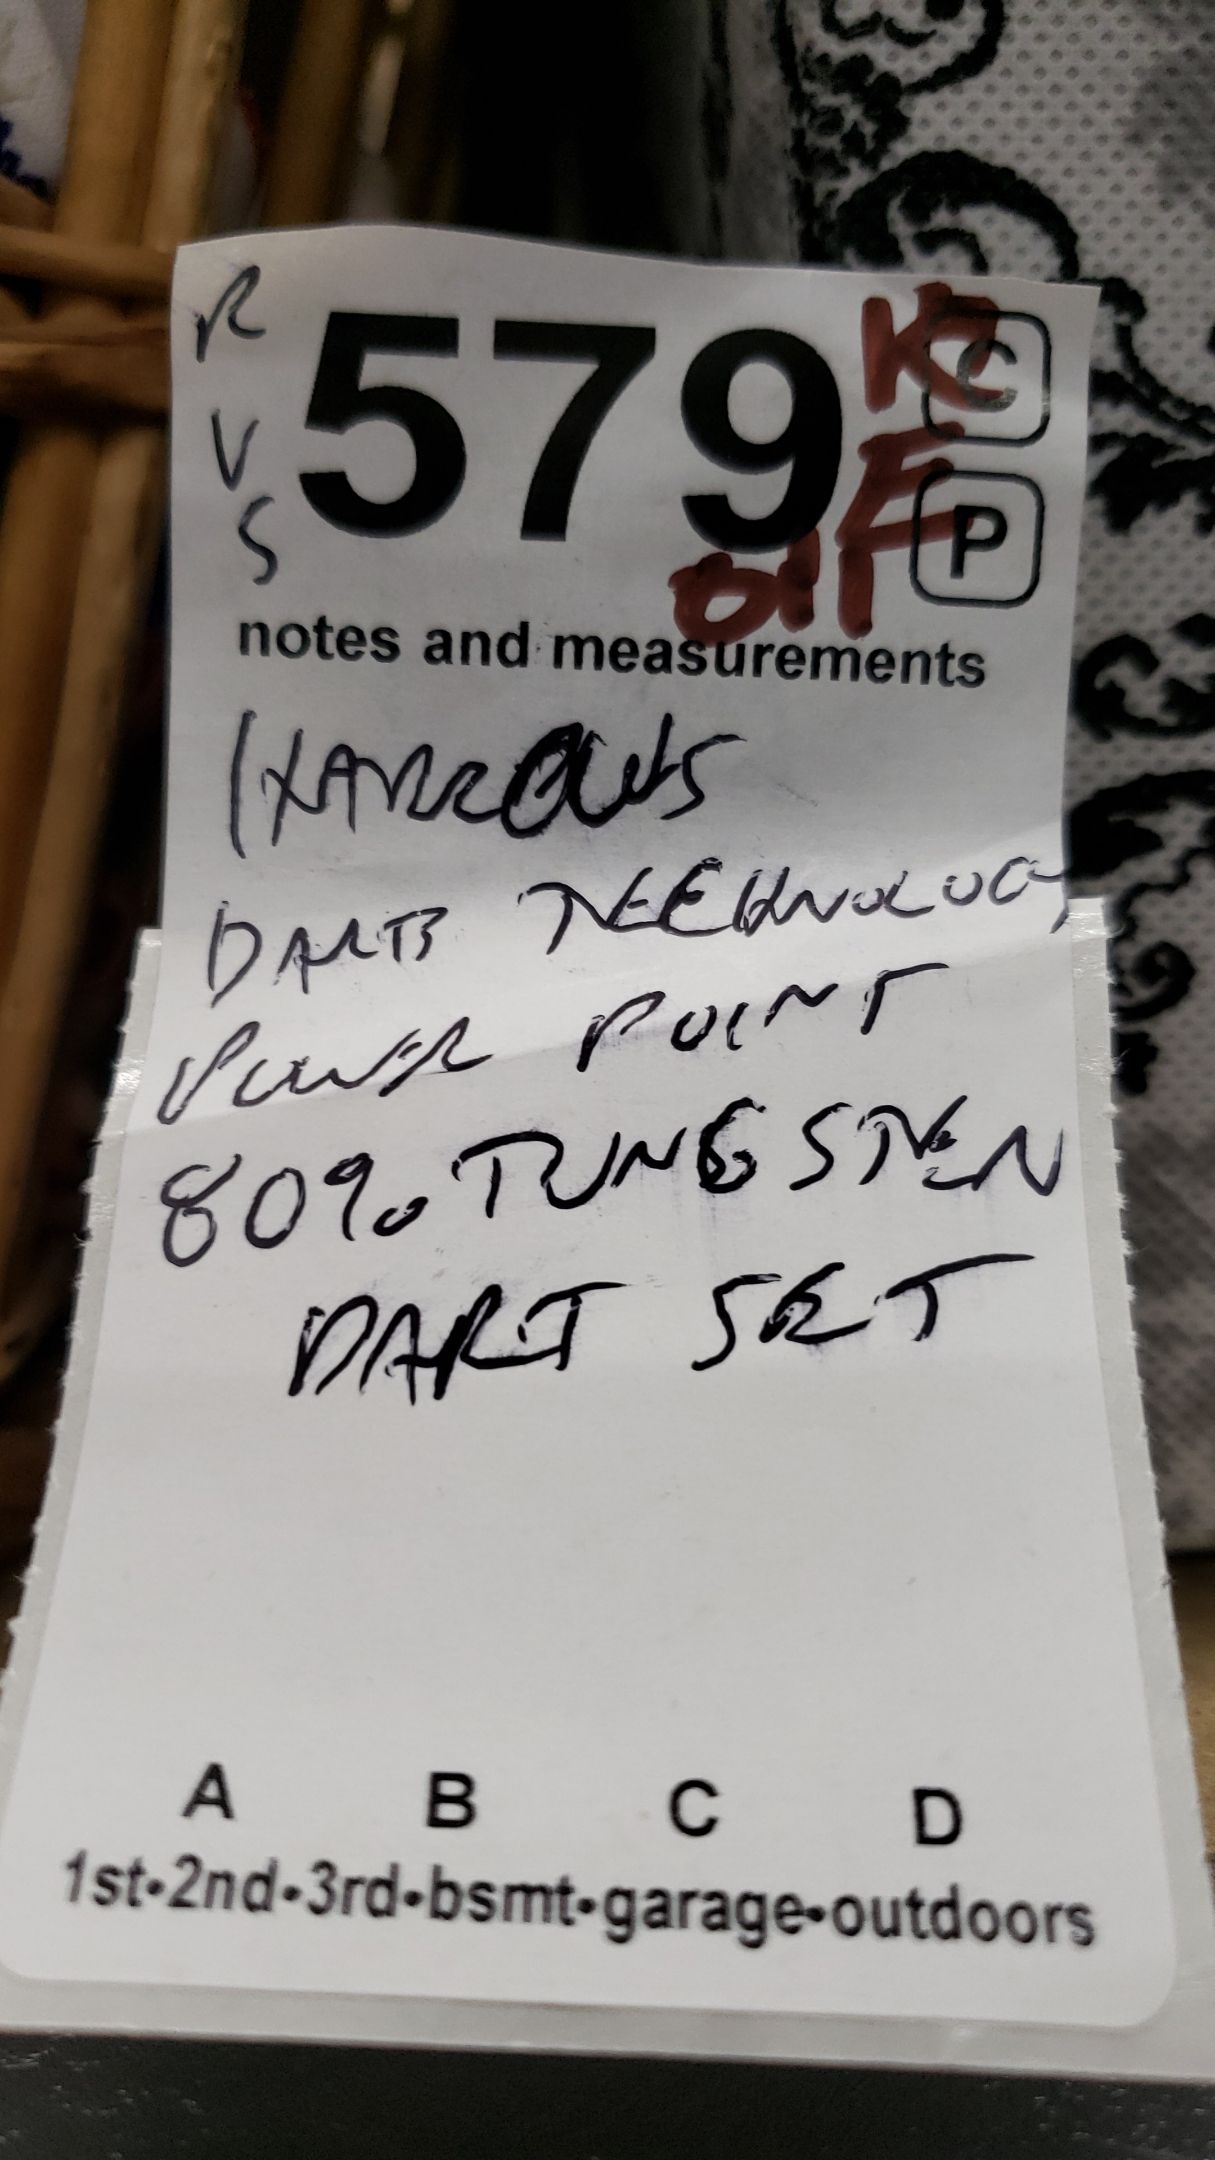 R
V
S
579
C
P
K
E
notes and measurements
HARROWS
DARTS TECHNOLOGY
POWER POINT
80% TUNGSTEN
DART SET
A B C D
1st•2nd•3rd•bsmt•garage•outdoors